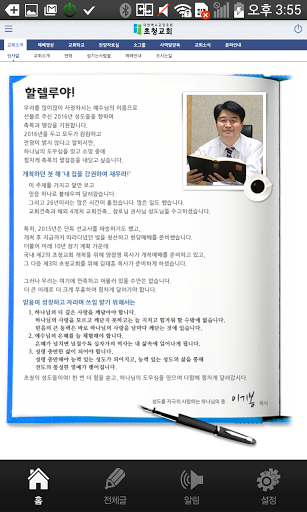 오후 3:55
대한예수교장로회
초청교회
교회소개 예배영상 교회학교 찬양자료실 소그룹 사역발장육 교회소식 문의안내
인사말 교회소개 연혁 섬기는사람들 예배안내 오시는길
할렐루야!
우리를 많이많이 사랑하시는 예수님의 이름으로
선물로 주신 2016년 성도들을 향하여
축복과 평강을 기원합니다.
2016년을 두고 모두가 캄캄하고
전망이 밝지 않다고 말하지만,
하나님의 도우심을 믿고 소망 중에
힘차게 축복의 발걸음을 내딛고 싶습니다.
개척하던 첫 해 '내 집을 강권하여 채우라!'
이 주제를 가지고 앞만 보고
믿음 하나로 불태우며 달려왔습니다.
그리고 26년이라는 많은 시간이 흘렀습니다. 많은 일도 했습니다.
교회건축과 해외 4개처 교회건축... 장로님 권사님 성도님들 수고하셨습니다.
특히, 2015년은 단독 선교사를 파송하기도 했고,
개척 후 지금까지 따라다녔던 빚을 청산하고 헌당예배를 준비했습니다.
더불어 미래 10년 장기 계획 가운데
국내 제2의 초청교회 개척을 위해 양광명 목사가 개척예배를 준비하고 있고,
그 다음 제3의 초청교회를 위해 김태훈 목사가 준비하게 하셨습니다.
그러나 우리는 여기에 만족하고 머물러 있을 수만은 없습니다.
더 큰 미래로 더 크게 부흥하며 힘차게 달려가야 합니다.
믿음이 성장하고 자라며 쓰임 받기 위해서는
1. 하나님의 더 깊은 사랑을 깨달아야 합니다.
하나님의 사랑을 모르고 깨닫지 못하고는 늘 지치고 힘겨워 할 수밖에 없습니다.
믿음의 큰 동력은 바로 하나님의 사랑을 날마다 깨닫는 것에 있습니다.
2. 예수님의 은혜를 늘 체험해야 합니다.
은혜가 넘치면 넘칠수록 십자가의 역사는 내 삶 속에서 일어나게 됩니다.
3. 성령 충만한 삶이 되어야 합니다.
성령 충만해야 능력 있는 성도가 되어지고, 능력 있는 성도의 삶을 통해
전도의 풍성한 열매가 맺어집니다.
초청의 성도들이여! 한 번 더 힘을 쏟고, 하나님의 도우심을 믿으며 다함께 힘차게 달려갑시다.
성도를 지극히 사랑하는 하나님의 종 이기봉 목사
홈 전체글 알림 설정